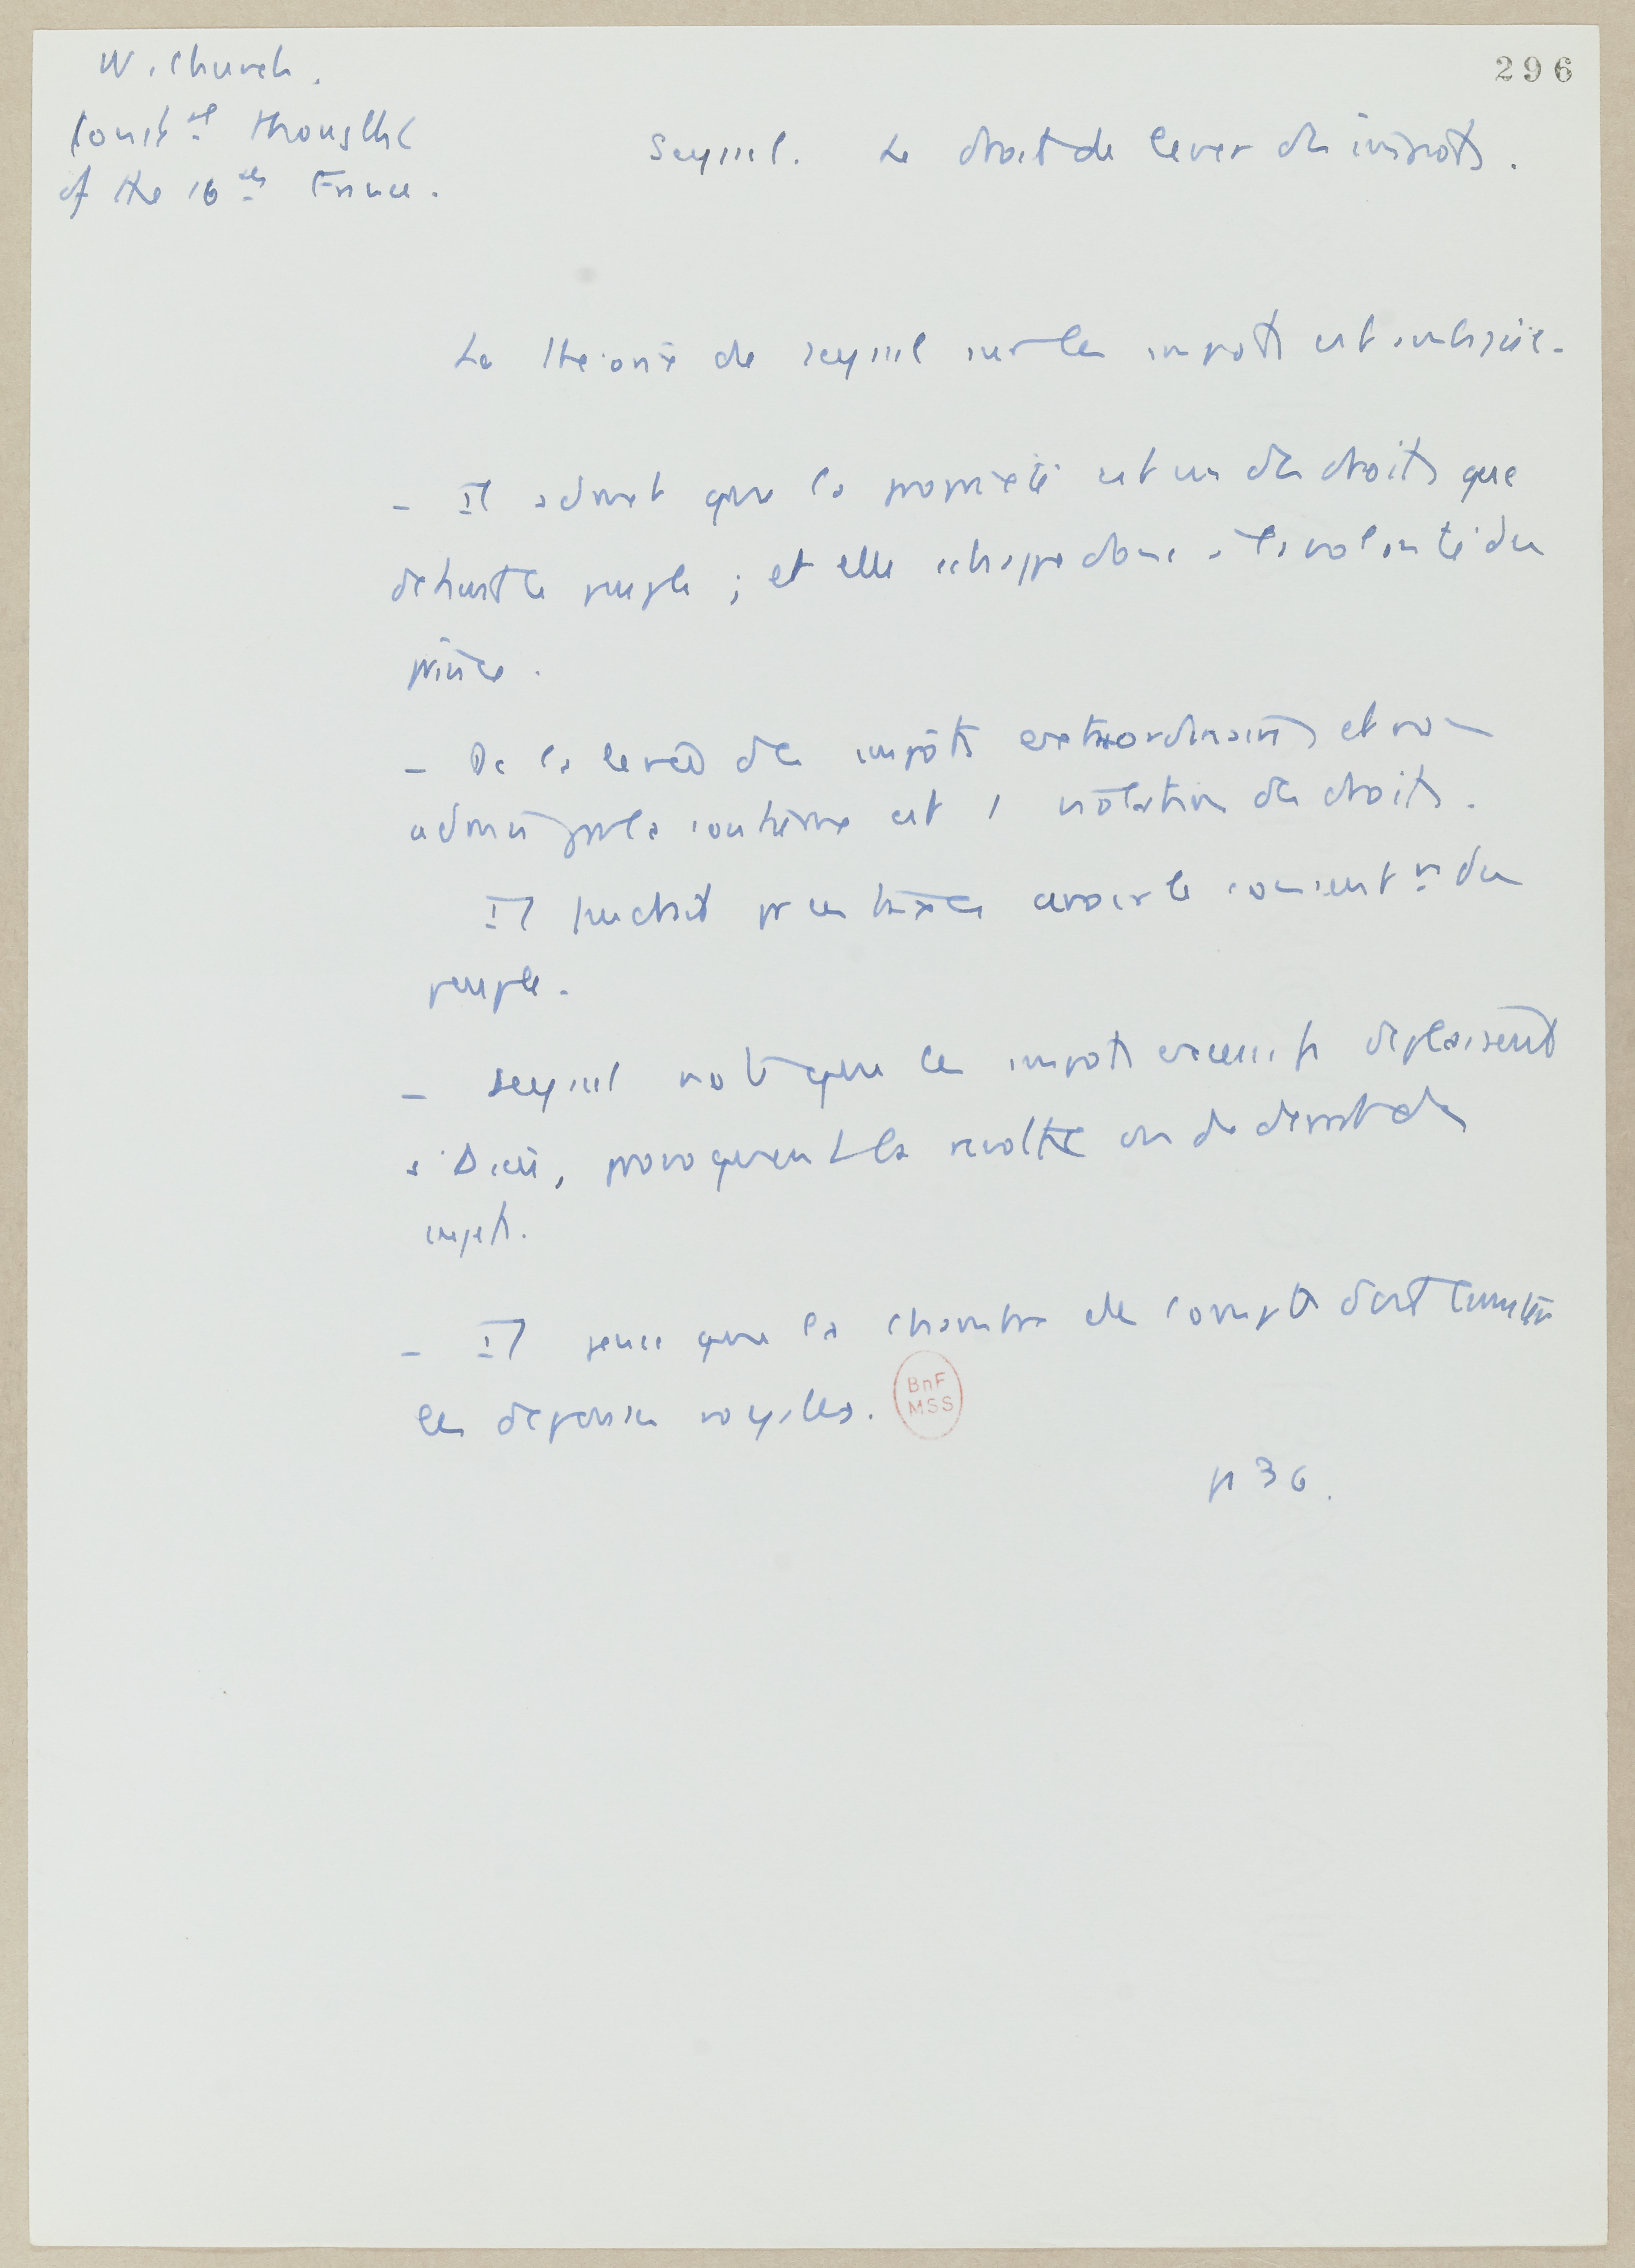 296
W. Church.
Constal thought
of the 16th France.
Seyssel. Le droit de lever des impôts.
La théorie de Seyssel sur les impôts est
- Il admet que la propriété est un des droits que
détient le peuple ; et elle échappe donc à la volonté du
prince.
- De la levée des impôts extraordinaires et non
admis par la coutume est 1 violation des droits.
Il faudrait pr ces taxes avoir le consentnt du
peuple.
- Seyssel note que les impôts excessifs déplaisent
à Dieu, provoquent la révolte ou le départ des
sujets.
- Il pense que la chambre des comptes doit limiter
les dépenses royales.
BnF
MSS
p 36.